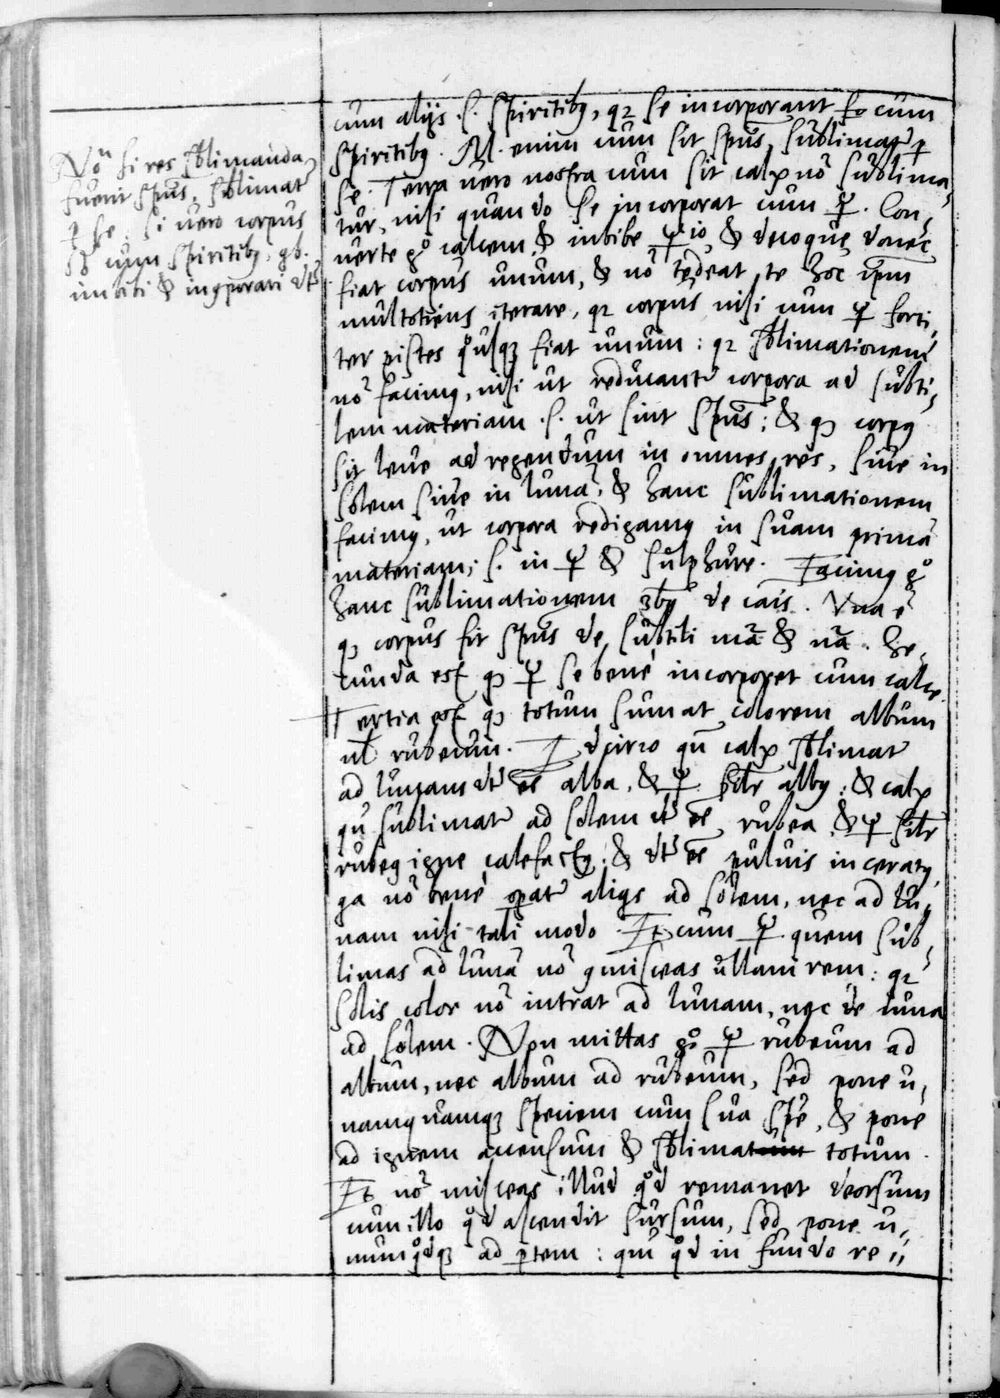 Nō si res sblimanda
fuerit spūs, sblimatr
p se. Si vero corpus
sȝ cum spiritibꝫ, gb.
imbibi & incorporari dr̄
cum alijs .s. spiritibꝫ, qꝛ se incorporant cum
spiritibꝫ. ☿. enim cum sit spūs, sublimatr p
se. Terra vero nostra cum sit calx nō sublima-
tur, nisi quando se incorporat cum ☿. Con-
uerte gͦ calcem, & imbibe ☿io, & decoque donec
fiat corpus unum, & nō tedeat te hoc ipm
multotiens iterare, qꝛ corpus nisi cum ☿ forti-
ter pistes qͦusqꝫ fiat unum: qꝛ sblimationem
nō facimꝰ, nisi ut reducantr corpora ad subti-
lem materiam .s. ut sint spūs: & qȝ corpꝰ
sit leue ad regendum in omnes res, siue in
solem siue in lunā, & hanc sublimationem
facimꝰ, ut corpora redigamꝰ in suam primā
materiam; s. in ☿ & sulphure. Facimꝰ gͦ
hanc sublimationem 3bꝫ de cāis. Vna ē
qȝ corpus fit spūs de subtili mā & nā. Se-
cunda est qȝ ☿ se bene incorporet cum calce
Tertia est qȝ totum sumat colorem album
ul rubeum. Idcirco qn̄ calx sblimatr
ad lunam dr̄ eē alba, & ☿ silr albꝰ: & calx
qn̄ sublimatr ad solem dr̄ eē rubea, & ☿ silr
rubeꝰ igne calefactꝰ: & dr̄ eē puluis inceratꝰ,
qa nō bene opatr aliqs ad solem, nec ad lu-
nam nisi tali modo. Et cum ☿. quem sub-
limas ad lunā nō gmisceas ullam rem: qꝛ
solis color nō intrat ad lunam, nec de luna
ad solem. Non mittas gͦ ☿ rubeum ad
album, nec album ad rubeum, sed pone u-
namquamqꝫ speciem cum sua spē, & pone
ad ignem accensum & sblima totum.
Et nō misceas illud qͦd remanet deorsum
cum illo qͦd ascendit sursum, sed pone u-
numqͦdqꝫ ad ptem: qm̄ qͦd in fundo re-